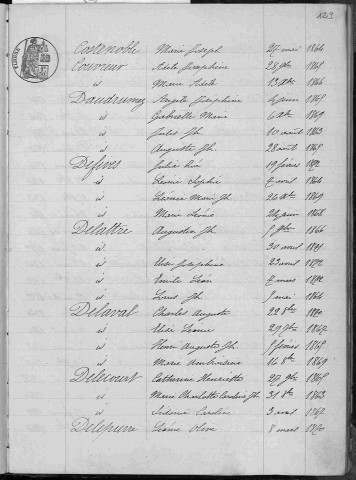 129
Costenoble Marie Joseph 25 mai 1864
Couvreur Adèle Joséphine 28 9bre 1868
id Marie Adèle 13 8bre 1866
Daudrumez Angèle Joséphine 4 juin 1865
id Gabrielle Marie 6 8bre 1869
id Jules Jh 10 août 1863
id Auguste Jh 28 août 1868
Defives Julie 19 février 1872
id Léonie Sophie 7 avril 1866
id Léonce Marie Jh 26 8bre 1869
id Marie Léonie 24 juin 1868
Delattre Augustin Jh 5 9bre 1866
id 30 avril 1871
id Joséphine 23 avril 1872
id Emile Léon 7 mars 1872
id Louis Jh 5 mai 1864
Delaval Charles Auguste 22 8bre 1870
id Elise Léonie 29 7bre 1867
id Henri Auguste Jh 5 février 1865
id Marie Ambroisine 14 8bre 1869
Delecourt Catherine Henriette 29 9bre 1865
id Marie Charlotte Caroline Jh 31 8bre 1863
id Sidonie Caroline 3 avril 1867
Delepierre Léonie Olive 8 mars 1870